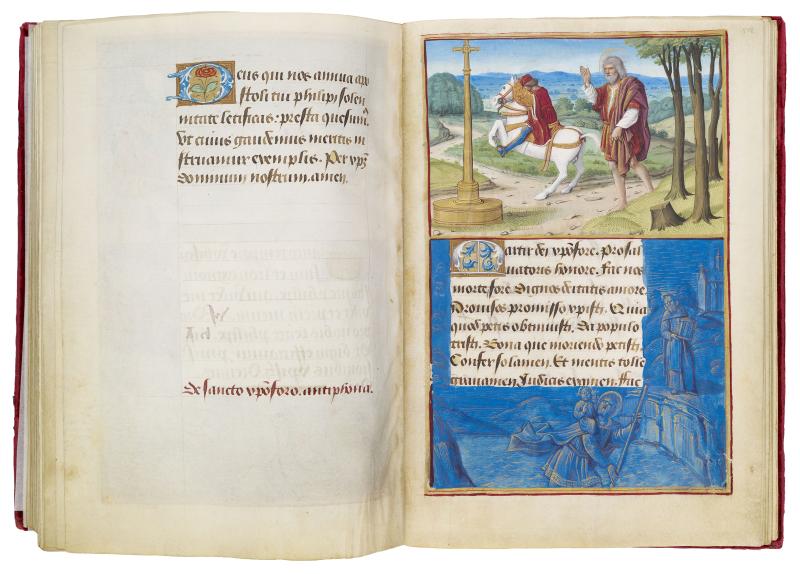 Deus qui nos annua apo
stoli tui philipi solen
nitate letificas: presta quesum̃.
Vt cuius gaudemus meritis in
struamur exemplis. Per xp̃m
dominum nostrum. amen.
De sancto xp̃oforo. antiphona.
Martir dei xp̃ofore. Pro sal
uatoris honore. Fac nos
mente fore. Dignos deitatis amore.
Promisso xp̃isti. Quia
quod petis obtinuisti. Da populo
tristi. Bona que moriendo petisti.
Confer solamen. Et mentis tolle
grauamen. Iudicis examen. Fac